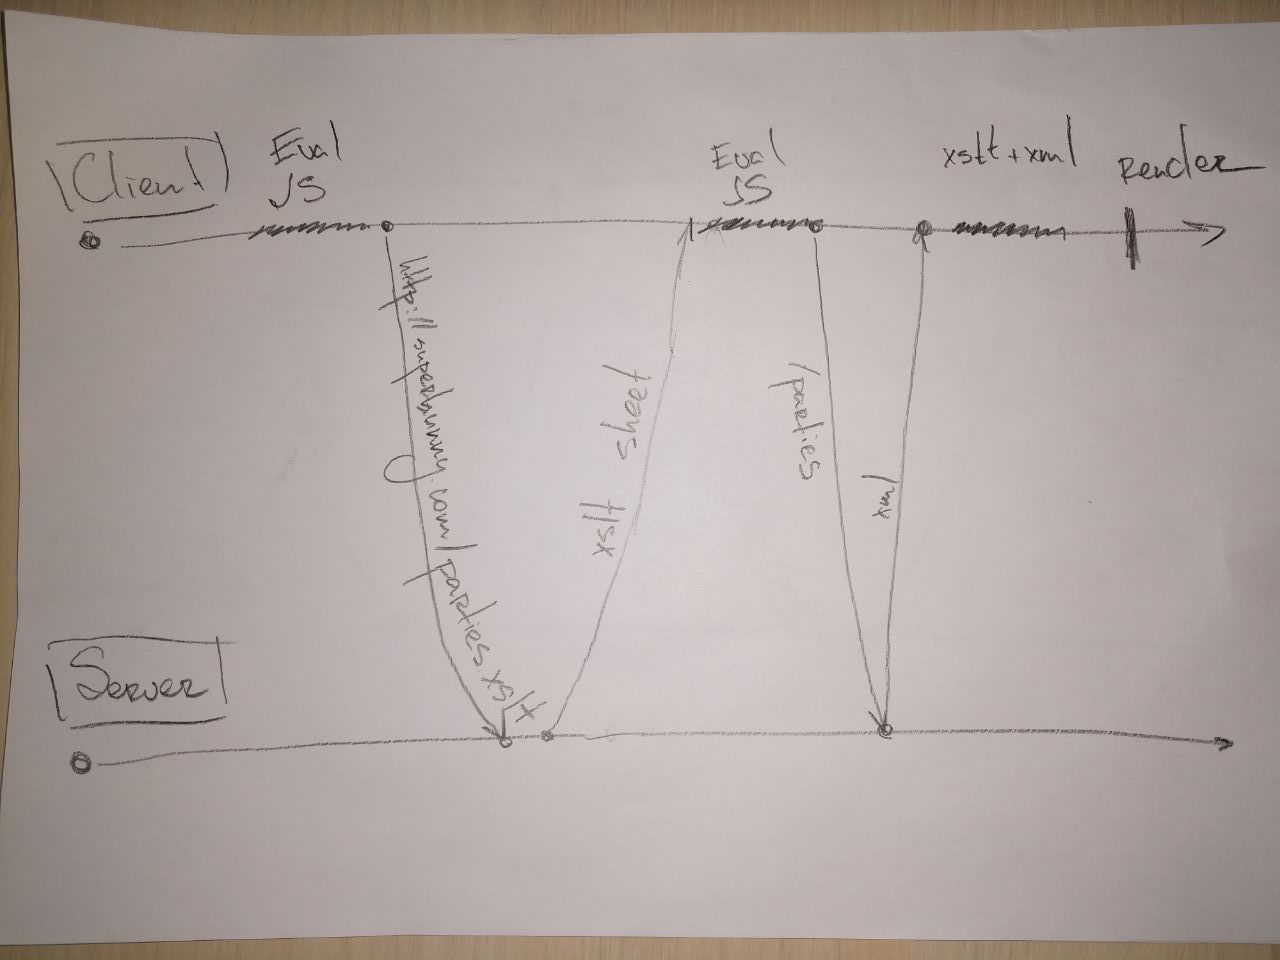 Client
Eval
JS
Eval
JS
xslt+xml
Render
http://superbunny.com/parties.xslt
xslt sheet
/parties
xml
Server